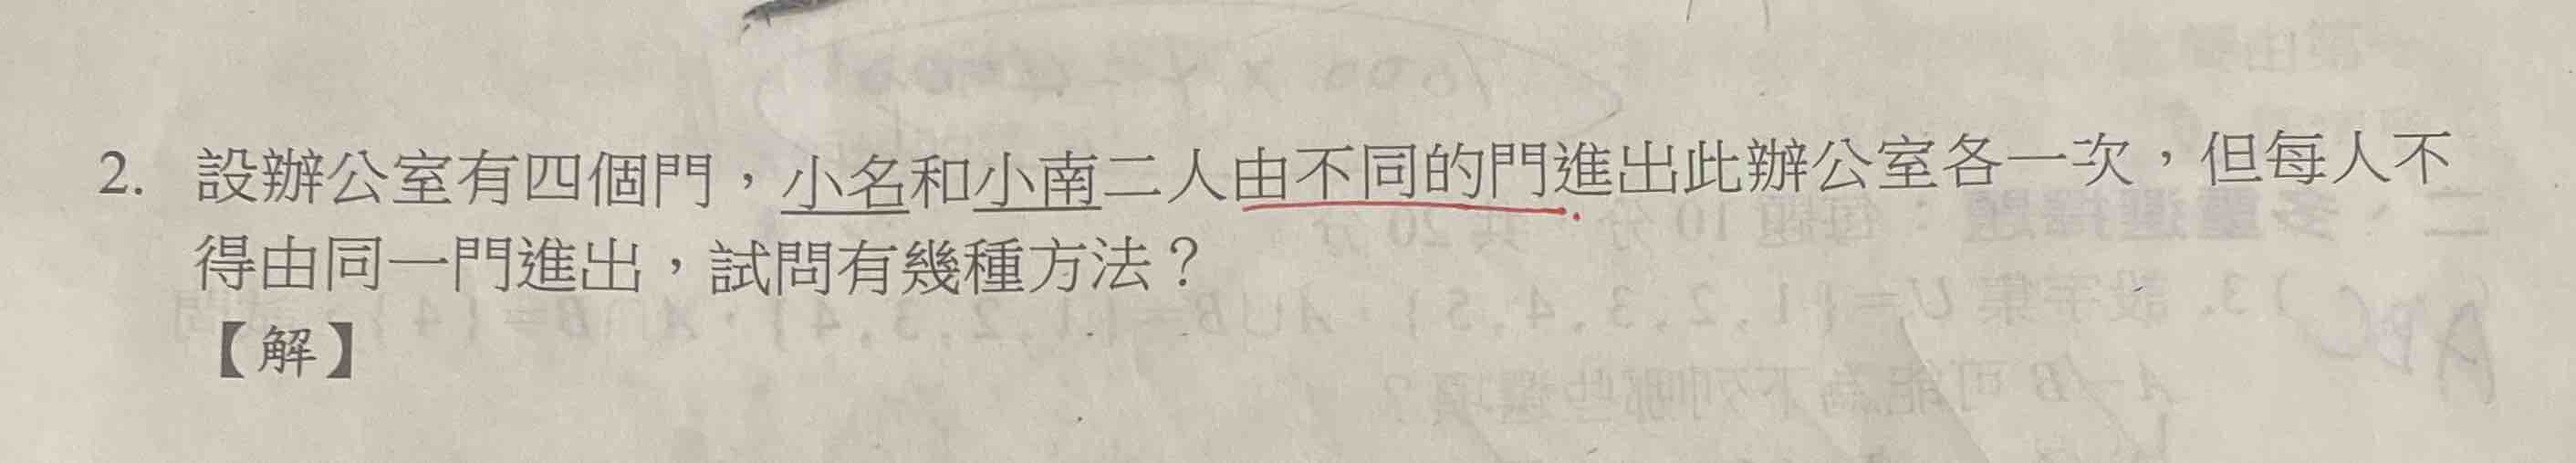 2. 設辦公室有四個門，小名和小南二人由不同的門進出此辦公室各一次，但每人不
得由同一門進出，試問有幾種方法？
【解】